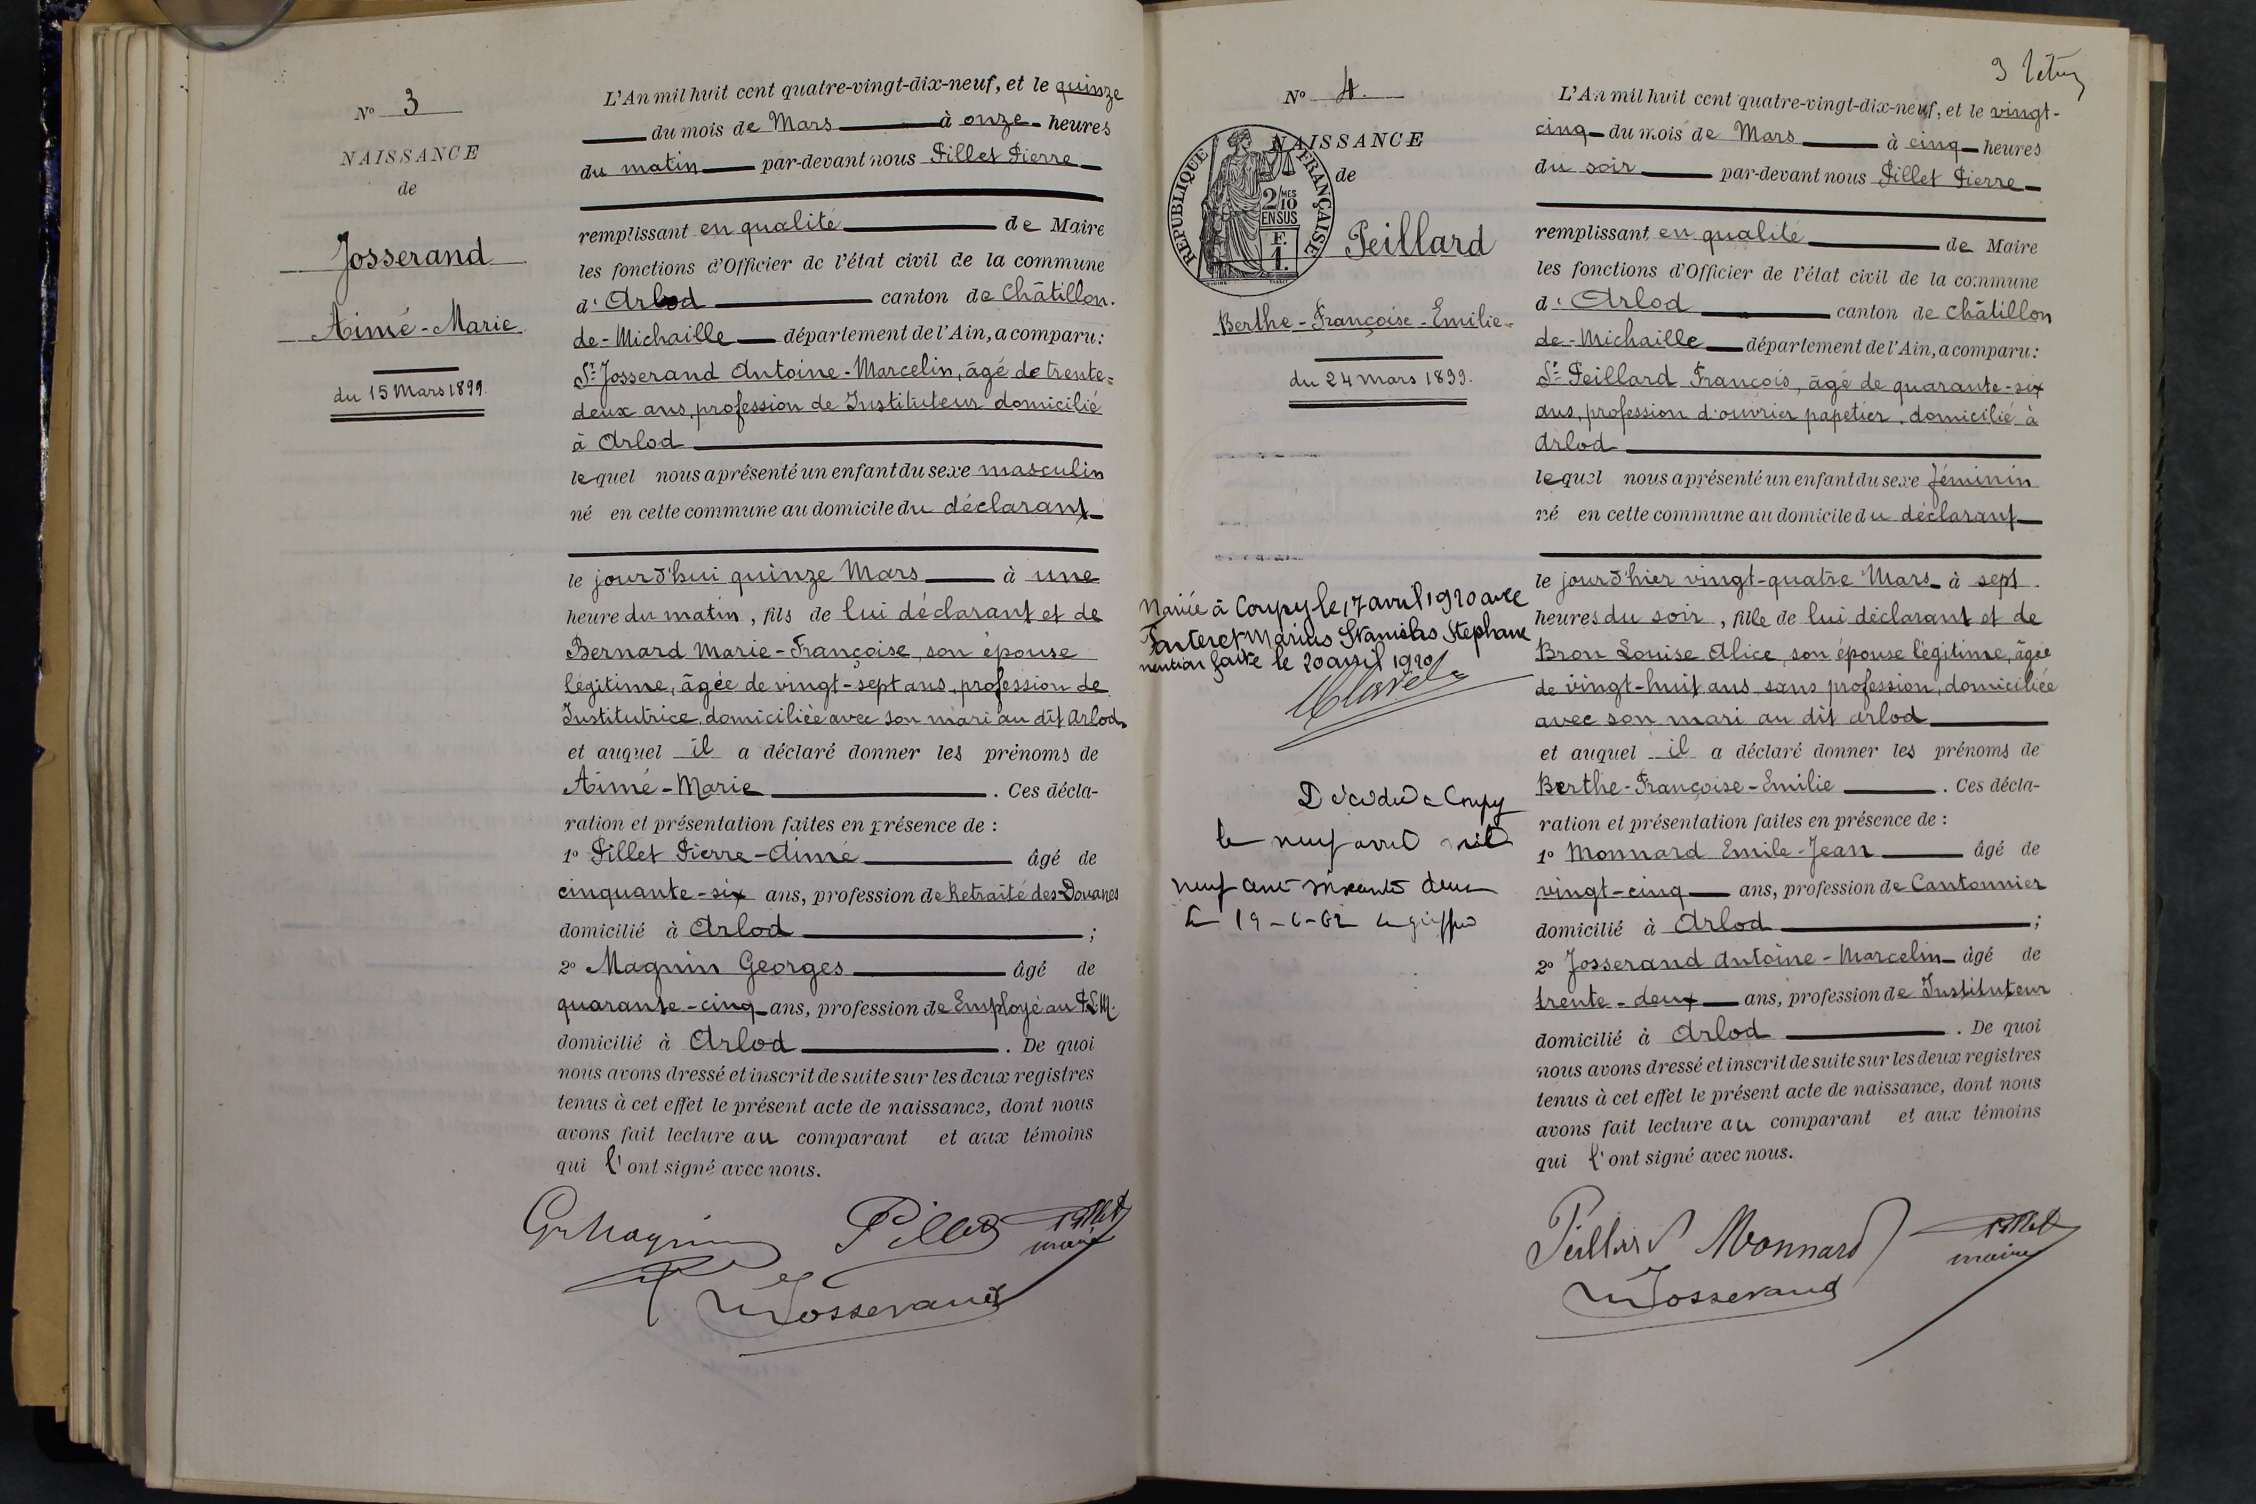 N° 3
NAISSANCE
de
Josserand
Aimé-Marie
du 15 Mars 1899.
L'An mil huit cent quatre-vingt-dix-neuf, et le quinze
du mois de Mars à onze heures
du matin par-devant nous Pillet Pierre
remplissant en qualité de Maire
les fonctions d'Officier de l'état civil de la commune
d' Arlod canton de Châtillon-
de-Michaille département de l'Ain, a comparu:
Sr Josserand Antoine-Marcelin, âgé de trente-
deux ans, profession de Instituteur domicilié
à Arlod
lequel nous a présenté un enfant du sexe masculin
né en cette commune au domicile du déclarant
le jourd'hui quinze Mars à une
heure du matin, fils de lui déclarant et de
Bernard Marie-Françoise, son épouse
légitime, âgée de vingt-sept ans, profession de
Institutrice, domiciliée avec son mari au dit Arlod
et auquel il a déclaré donner les prénoms de
Aimé-Marie. Ces décla-
ration et présentation faites en présence de :
1° Pillet Pierre-Aimé âgé de
cinquante-six ans, profession de Retraité des Douanes
domicilié à Arlod ;
2° Magnin Georges âgé de
quarante-cinq ans, profession de Employé au P.L.M.
domicilié à Arlod. De quoi
nous avons dressé et inscrit de suite sur les deux registres
tenus à cet effet le présent acte de naissance, dont nous
avons fait lecture au comparant et aux témoins
qui l'ont signé avec nous.
G Magnin Pillet Pillet
maire
Josserand
3
N° 4.
NAISSANCE
de
RÉPUBLIQUE FRANÇAISE
2/10 MES
EN SUS
F.
1.
Peillard
Berthe-Françoise-Emilie
du 24 Mars 1899.
Mariée à Coupy le 17 avril 1920 avec
Marius Stanislas Stephane
mention faite le 20 avril 1920
Clavel
Décédée à Coupy
le neuf avril mil
neuf cent soixante deux
Le 19-6-62 le greffier
L'An mil huit cent quatre-vingt-dix-neuf, et le vingt-
cinq du mois de Mars à cinq heures
du soir par-devant nous Pillet Pierre
remplissant en qualité de Maire
les fonctions d'Officier de l'état civil de la commune
d' Arlod canton de Châtillon
de-Michaille département de l'Ain, a comparu:
Sr Peillard François, âgé de quarante-six
ans, profession d'ouvrier papetier, domicilié à
Arlod
lequel nous a présenté un enfant du sexe féminin
né en cette commune au domicile du déclarant
le jourd'hier vingt-quatre Mars à sept
heures du soir, fille de lui déclarant et de
Bron Louise Alice, son épouse légitime, âgée
de vingt-huit ans sans profession, domiciliée
avec son mari au dit Arlod
et auquel il a déclaré donner les prénoms de
Berthe-Françoise-Emilie. Ces décla-
ration et présentation faites en présence de :
1° Monnard Emile-Jean âgé de
vingt-cinq ans, profession de Cantonnier
domicilié à Arlod ;
2° Josserand Antoine-Marcelin âgé de
trente-deux ans, profession de Instituteur
domicilié à Arlod. De quoi
nous avons dressé et inscrit de suite sur les deux registres
tenus à cet effet le présent acte de naissance, dont nous
avons fait lecture au comparant et aux témoins
qui l'ont signé avec nous.
Peillard Monnard Pillet
maire
Josserand